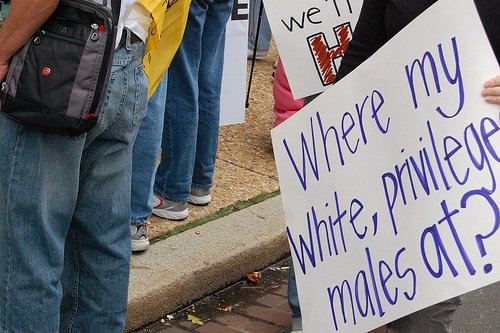 we'll
H
Where my
white, privileged
males at?